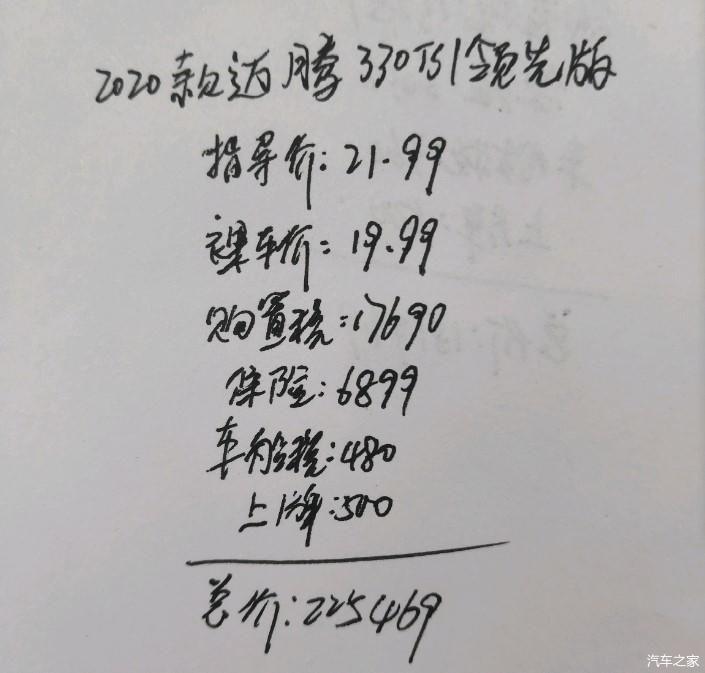 2020款迈腾330TSI领先版
指导价:21.99
裸车价:19.99
购置税:17690
保险:6899
车船税:480
上牌:500
总价:225469
汽车之家